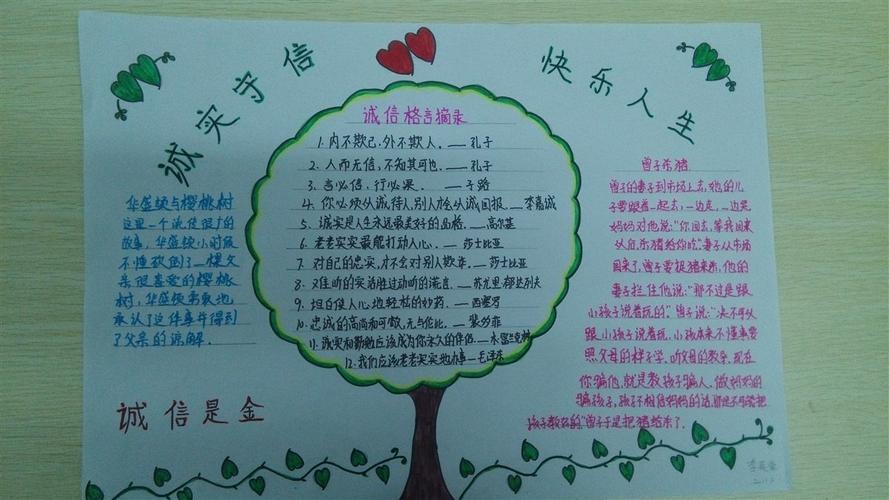 诚实守信
快乐人生
诚信格言摘录
1. 内不欺己,外不欺人。——孔子
2. 人而无信,不知其可也。——孔子
3. 言必信,行必果。——子路
4. 你必须以诚待人,别人才会以诚回报。——李嘉诚
5. 诚实是人生永远最美好的品格。——高尔基
6. 老老实实最能打动人心。——莎士比亚
7. 对自己的忠实,才不会对别人欺诈。——莎士比亚
8. 难听的实话胜过动听的谎言。
9. 坦白使人心地轻松的妙药。——西塞罗
10. 忠诚的高尚和可敬,无与伦比。
11. 诚实和勤勉应该成为你永久的伴侣。
12. 我们应该老老实实地办事——毛泽东
华盛顿与樱桃树
这里一个流传很广的
故事,华盛顿小时候
不懂砍倒了一棵父
亲很喜爱的樱桃
树,华盛顿勇敢地
承认了这件事并得到
了父亲的谅解。
诚信是金
曾子杀猪
曾子的妻子到市场上去,她的儿
子要跟着一起去,一边走,一边哭。
妈妈对他说:“你回去,等我回来
以后,杀猪给你吃。”妻子从市场
回来了,曾子要捉猪来杀,他的
妻子拦住他说:“那不过是跟
小孩子说着玩的”曾子说:“决不可以
跟小孩子说着玩。小孩本来不懂事要
照父母的样子学,听父母的教导。现在
你骗他,就是教孩子骗人。做妈妈的
骗孩子,孩子不相信妈妈的话,那是不可能把
孩子教好的。”曾子于是把猪给杀了。